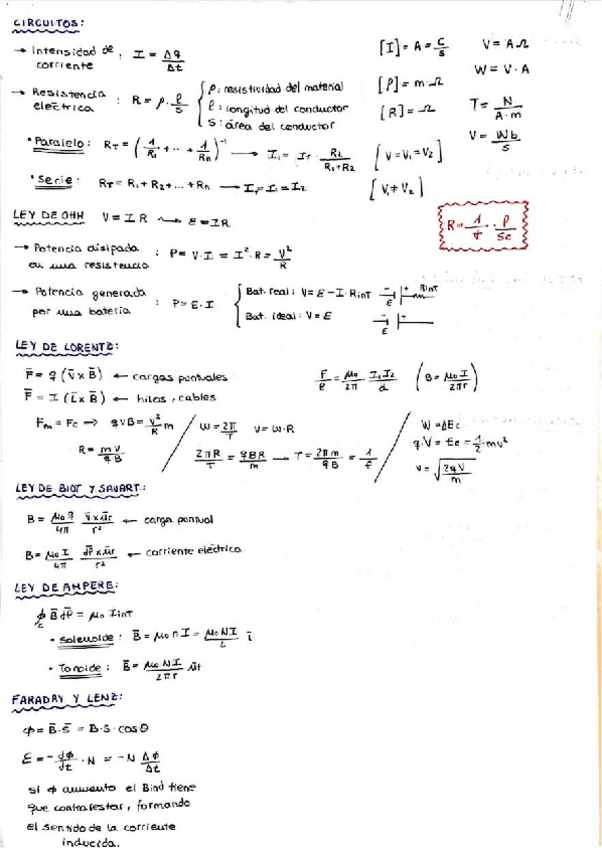 CIRCUITOS:
→ Intensidad de corriente : I = Δq/Δt
[I] = A = C/s
V = A·Ω
W = V·A
→ Resistencia eléctrica : R = ρ · ℓ/S { ρ: resistividad del material
ℓ: longitud del conductor
S: área del conductor
[ρ] = m·Ω
[R] = Ω
T = N/A·m
V = Wb/s
• Paralelo: R_T = (1/R₁ + ... + 1/Rn)⁻¹ → I₁ = I_T · R₂/(R₁+R₂) [V = V₁ = V₂]
• Serie: R_T = R₁ + R₂ + ... + Rn → I_T = I₁ = I₂ [V₁ ≠ V₂]
LEY DE OHM V = I R → ε = IR
→ Potencia disipada en una resistencia : P = V·I = I²·R = V²/R
→ Potencia generada por una batería : P = ε·I { Bat. real: V = ε − I·R_INT
Bat. ideal: V = ε
LEY DE LORENTZ:
F̄ = q (v̄ x B̄) ← cargas puntuales
F̄ = I (L̄ x B̄) ← hilos, cables
F/ℓ = μ₀/2π I₁I₂/d (B = μ₀I/2πr)
Fm = Fc → qvB = v²/R m
R = mv/qB
W = 2π/T V = W·R
2πR/T = qBR/m → T = 2πm/qB = 1/f
W = ΔEc
q·V = Ec = 1/2·mv²
v = √(2qV/m)
LEY DE BIOT Y SAVART:
B = μ₀q/4π v̄ x ūr/r² ← carga puntual
B = μ₀I/4π dℓ̄ x ūr/r² ← corriente eléctrica
LEY DE AMPERE:
∮c B̄ dℓ̄ = μ₀ I int
• Solenoide: B̄ = μ₀ n I = μ₀NI/L ī
• Toroide: B̄ = μ₀NI/2πr ūt
FARADAY Y LENZ:
ϕ = B̄·s̄ = B·S·cosθ
ε = −dϕ/dt · N = −N Δϕ/Δt
si ϕ aumenta el Bind tiene
que contrarrestar, formando
el sentido de la corriente
inducida.